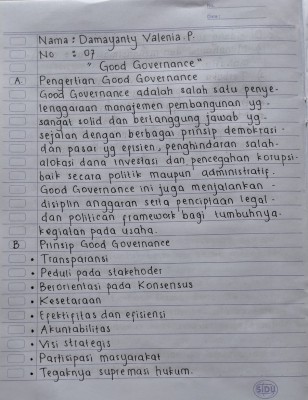 Date:
Nama : Damayanty Valenia.P.
No : 07
" Good Governance"
A. Pengertian Good Governance
Good Governance adalah salah satu penye-
lenggaraan manajemen pembangunan yg.
sangat solid dan bertanggung jawab yg-
sejalan dengan berbagai prinsip demokrasi-
dan pasar yg episien, penghindaran salah-
alokasi dana investasi dan pencegahan korupsi-
baik secara politik maupun administratif.
Good Governance ini juga menjalankan -
disiplin anggaran serta penciptaan legal -
dan politican framework bagi tumbuhnya-
kegiatan pada usaha.
B. Prinsip Good Governance
• Transparansi
• Peduli pada stakehoder
• Berorientasi pada Konsensus
• Kesetaraan
• Efektifitas dan efisiensi
• Akuntabilitas
• Visi strategis
• Partisipasi masyarakat
• Tegaknya supremasi hukum.
SIDU